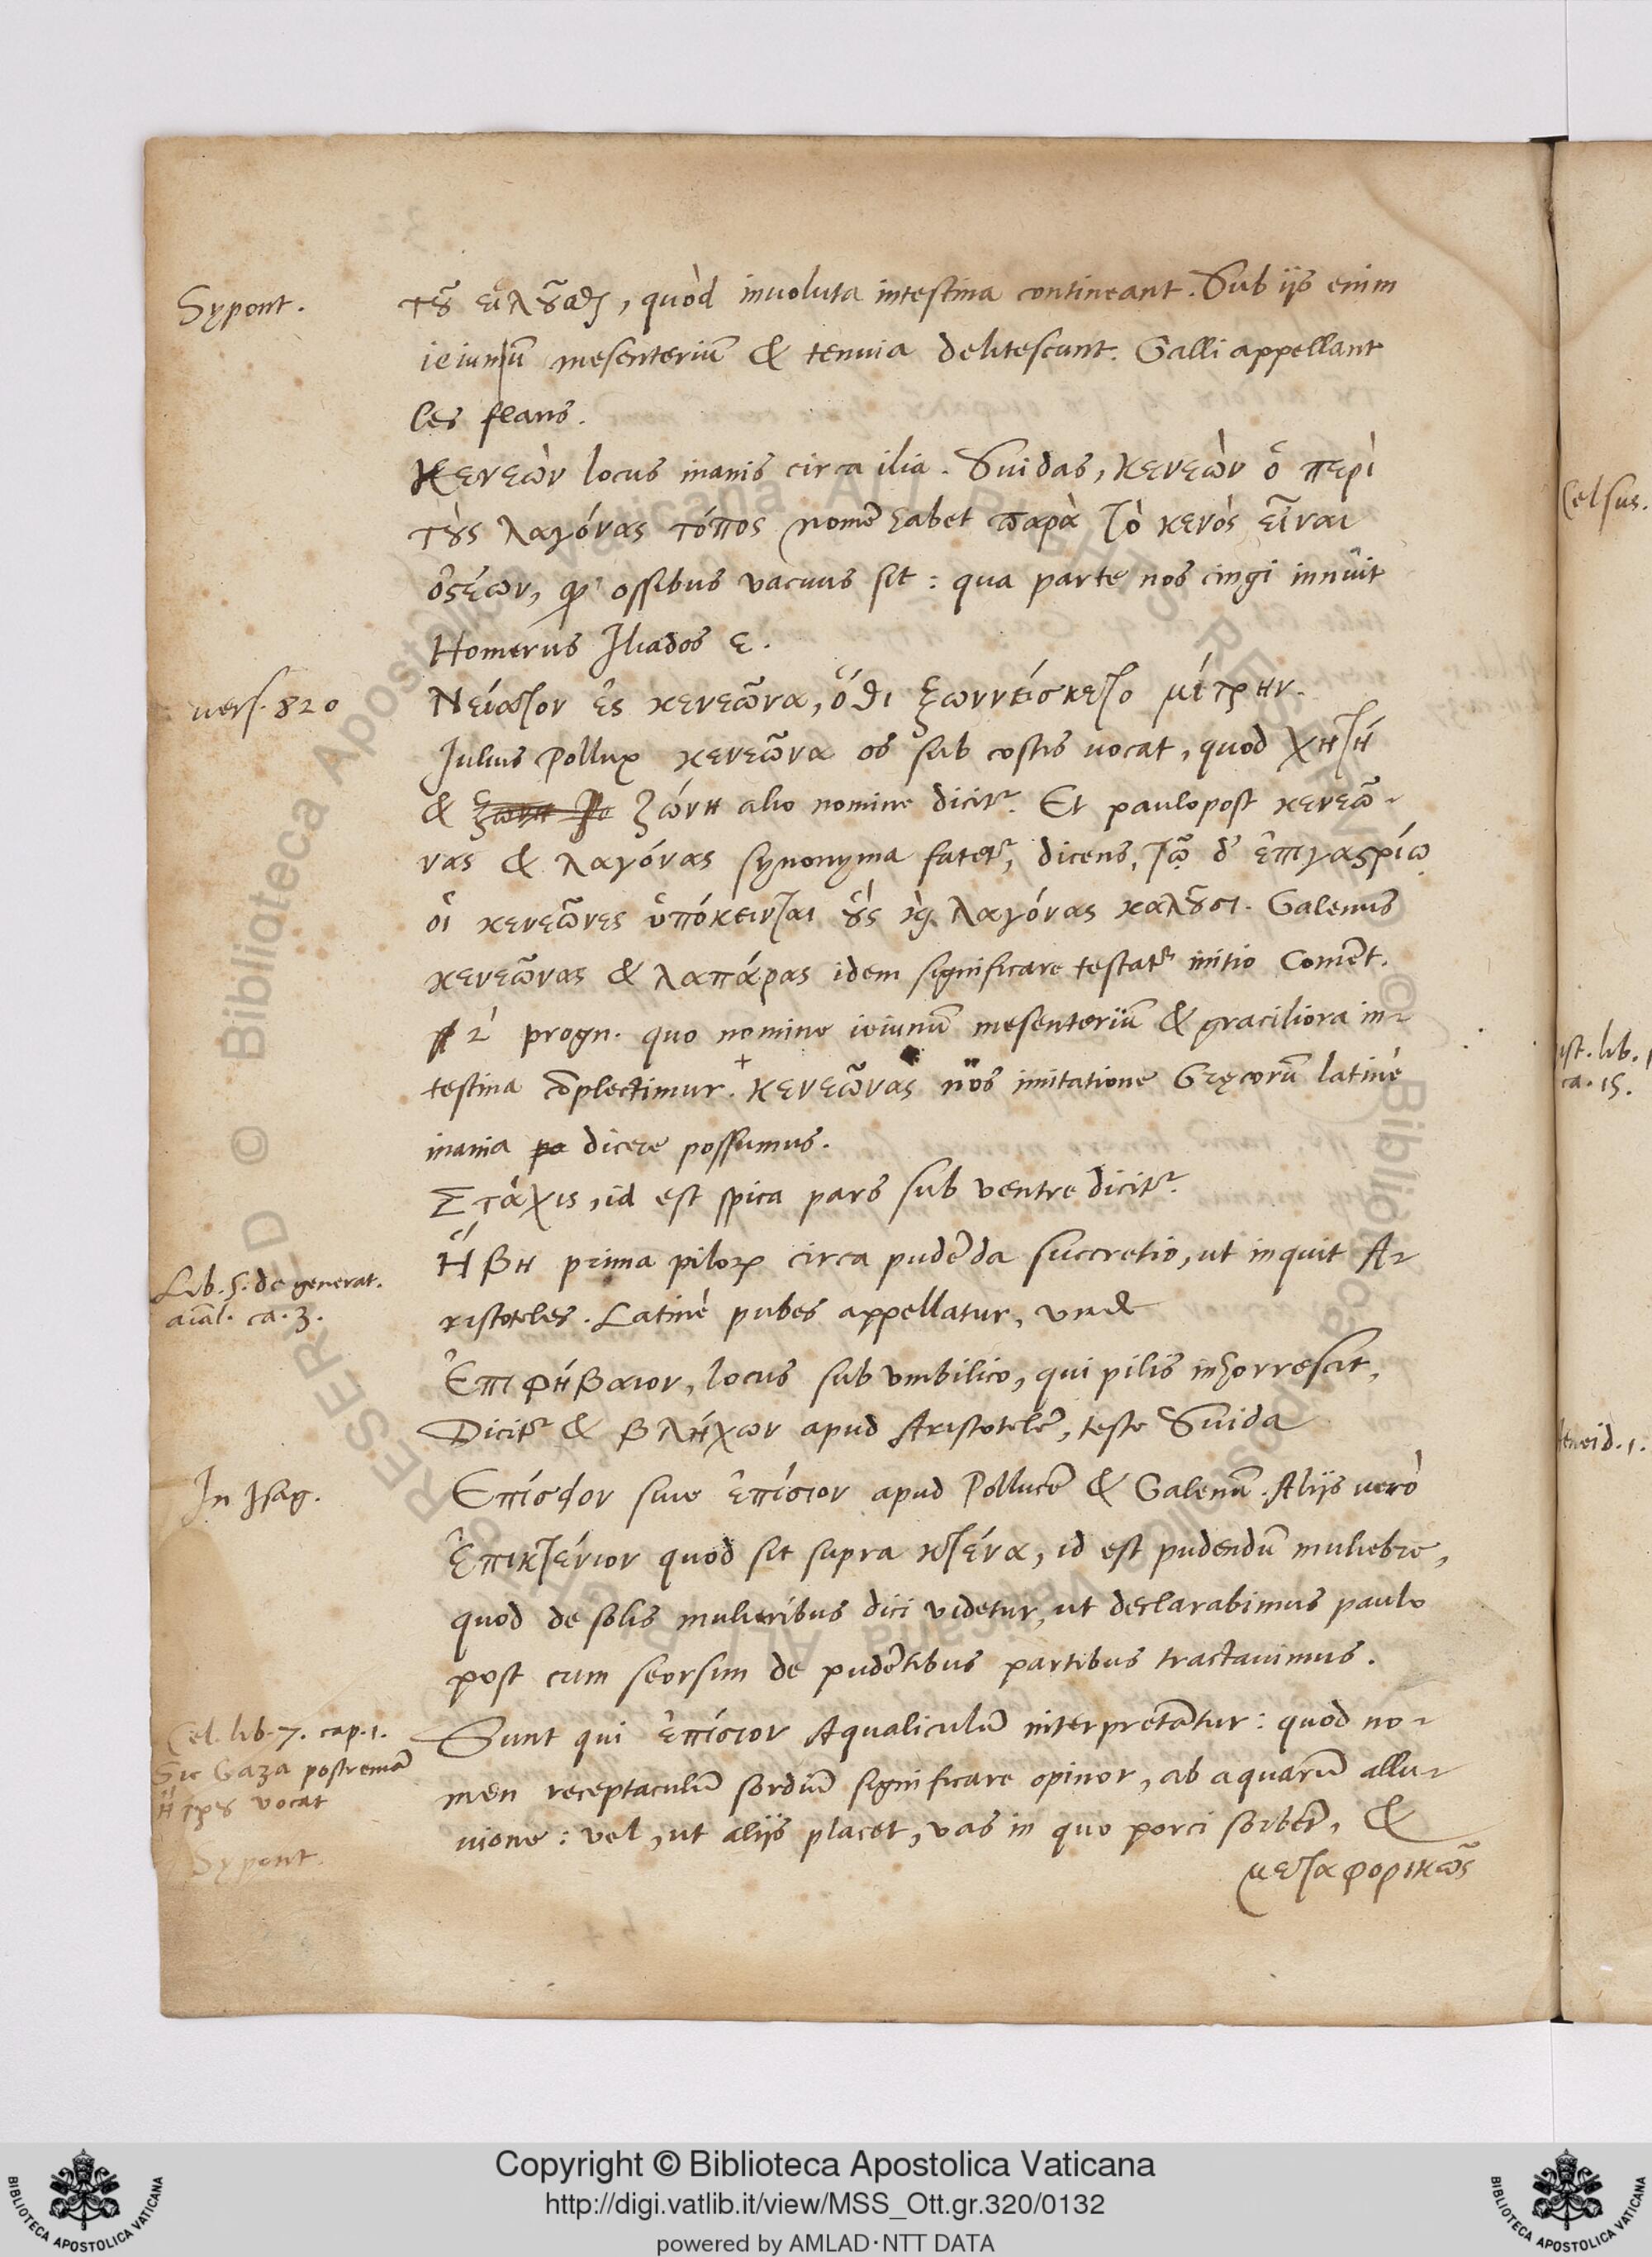 Sypont.
τȣ͂ εἰλȣ͂ϑαι, quòd inuoluta intestina contineant. Sub ijs enim
ieiunū mesenteriū & tenuia delitescunt. Galli appellant
les flans.
Κενεὼν locus inanis circa ilia. Suidas, κενεὼν ὁ περὶ
τȣ̀ς λαγόνας τόπος nomē habet παρὰ τὸ κενὸς εἶναι
ὀϛέων, qͩ ossibus vacuus sit: qua parte nos cingi innuit
Homerus Iliados ε.
vers. 820
Νείατον ἐς κενεῶνα, ὅθι ζωννύσκετο μίτρην.
Iulius Pollux κενεῶνα os sub costis uocat, quod χητὴ
& ζώνη alio nomine dicitr. Et paulopost κενεῶ-
νας & λαγόνας synonyma fatetr, dicens, τῷ δ' ἐπιγαϛρίῳ
οἱ κενεῶνες ὑπόκεινται ȣ̓́ς κ̀ λαγόνας καλȣ͂σι. Galenus
κενεῶνας & λαπάρας idem significare testatr initio Comēt.
2 progn. quo nomine ieiunū mesenteriū & graciliora in-
testina cōplectimur. + κενεῶνας nos imitatione Gręcorū latinè
inania dicere possumus.
Στάχις, id est spica pars sub ventre dicitr.
Lib. 5. de generat.
aīal. ca. 3.
Ἥβη prima pilorꝝ circa pudēda succretio, ut inquit A-
ristoteles. Latinè pubes appellatur, vnde
Ἐπιφήβαιον, locus sub vmbilico, qui pilis inhorrescit,
Dicitr & βλήχων apud Aristotelē, teste Suida
In Isag.
Επίσιον siue ἐπίσιον apud Pollucē & Galenū. Alijs verò
Ἐπικτένιον quod sit supra κτένα, id est pudendū muliebre,
quod de solis mulieribus dici videtur, ut declarabimus paulo
post cum seorsim de pudētibus partibus tractauimus.
Cel. lib. 7. cap. 1.
Sic Gaza postremā
ἤτρȣ vocat
Sypont.
Sunt qui ἐπίσιον Aqualiculū interpretātur: quod no-
men receptaculū sordiū significare opinor, ab aquarū allu-
uione: vel, ut alijs placet, vas in quo porci sorbēt, &
μεταφορικῶς
Celsus.
ist. lib.
ca. 15.
Aeneid. 1.
Copyright © Biblioteca Apostolica Vaticana
http://digi.vatlib.it/view/MSS_Ott.gr.320/0132
powered by AMLAD·NTT DATA
BIBLIOTECA APOSTOLICA VATICANA
BIBLIOTECA APOSTOLICA VATICANA